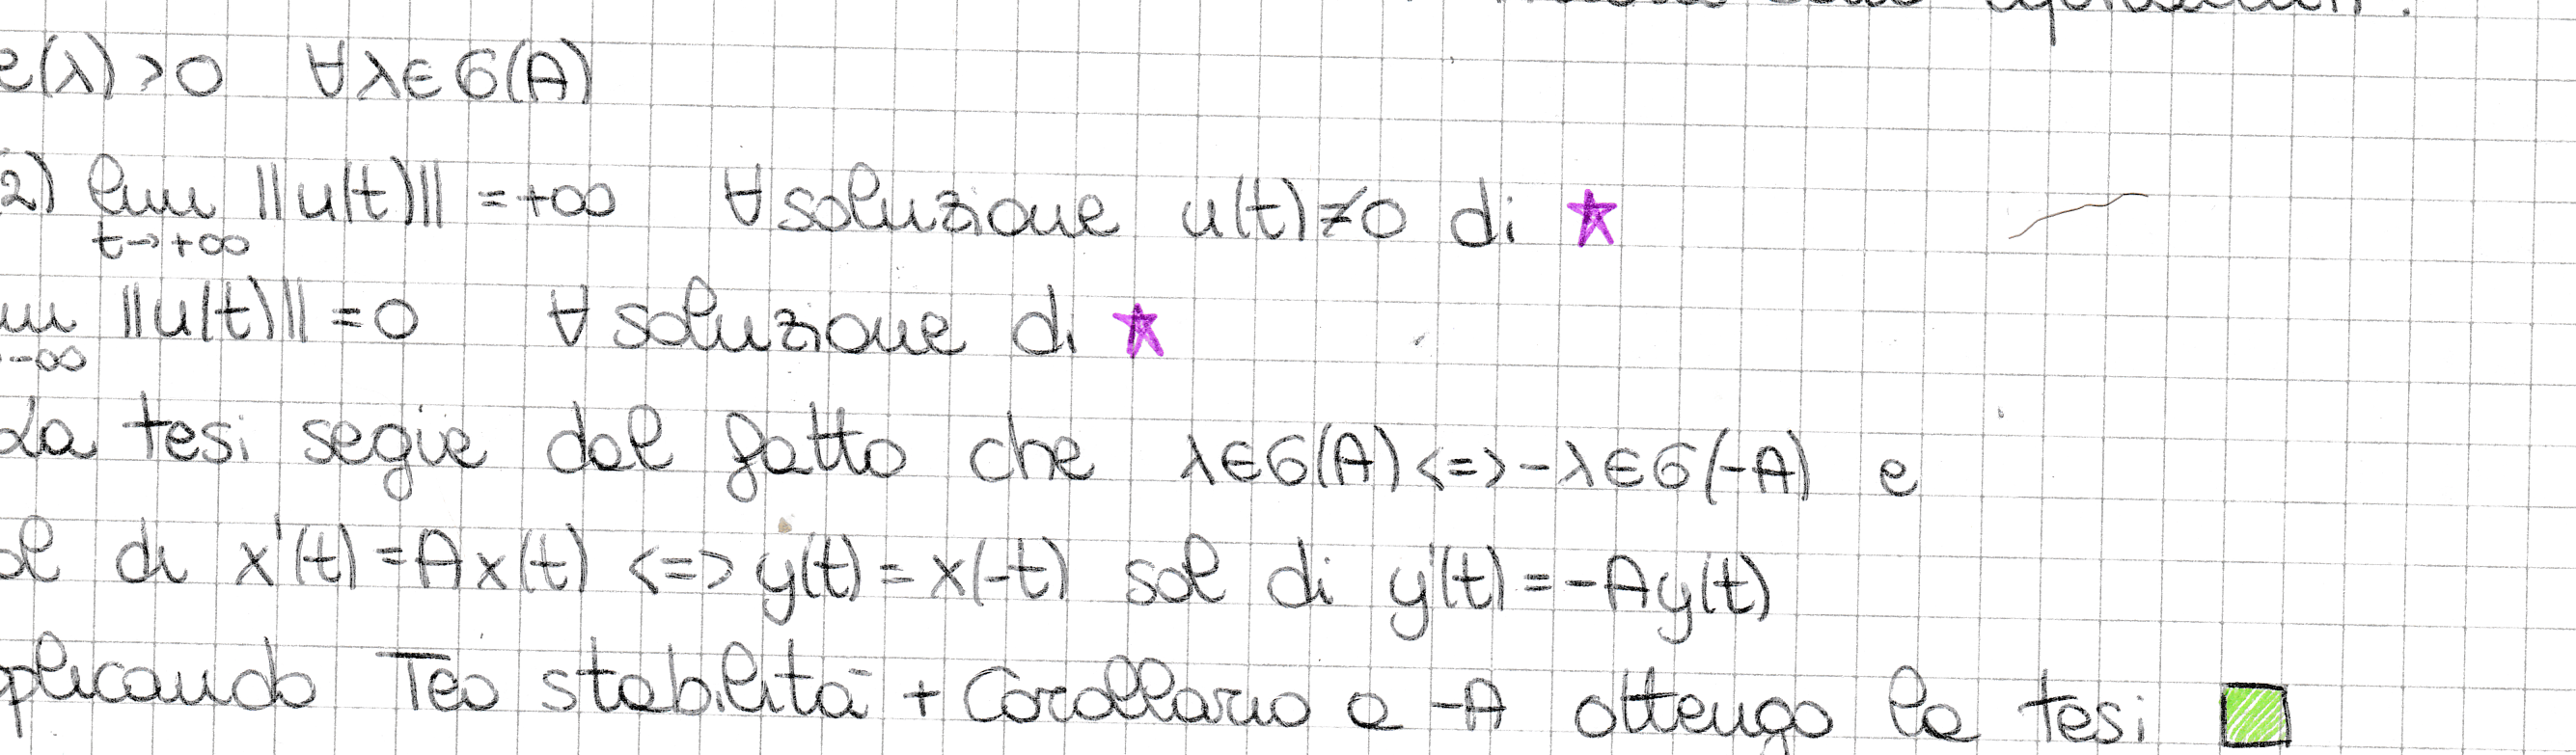 e(λ) > 0 ∀λ∈σ(A)
2) lim ||u(t)|| = +∞ ∀ soluzione u(t)≠0 di ★
t→+∞
m ||u(t)|| = 0 ∀ soluzione di ★
→-∞
La tesi segue dal fatto che λ∈σ(A) <=> -λ∈σ(-A) e
ol di x'(t) = Ax(t) <=> y(t) = x(-t) sol di y'(t) = -Ay(t)
plicando Teo stabilità + Corollario a -A ottengo la tesi